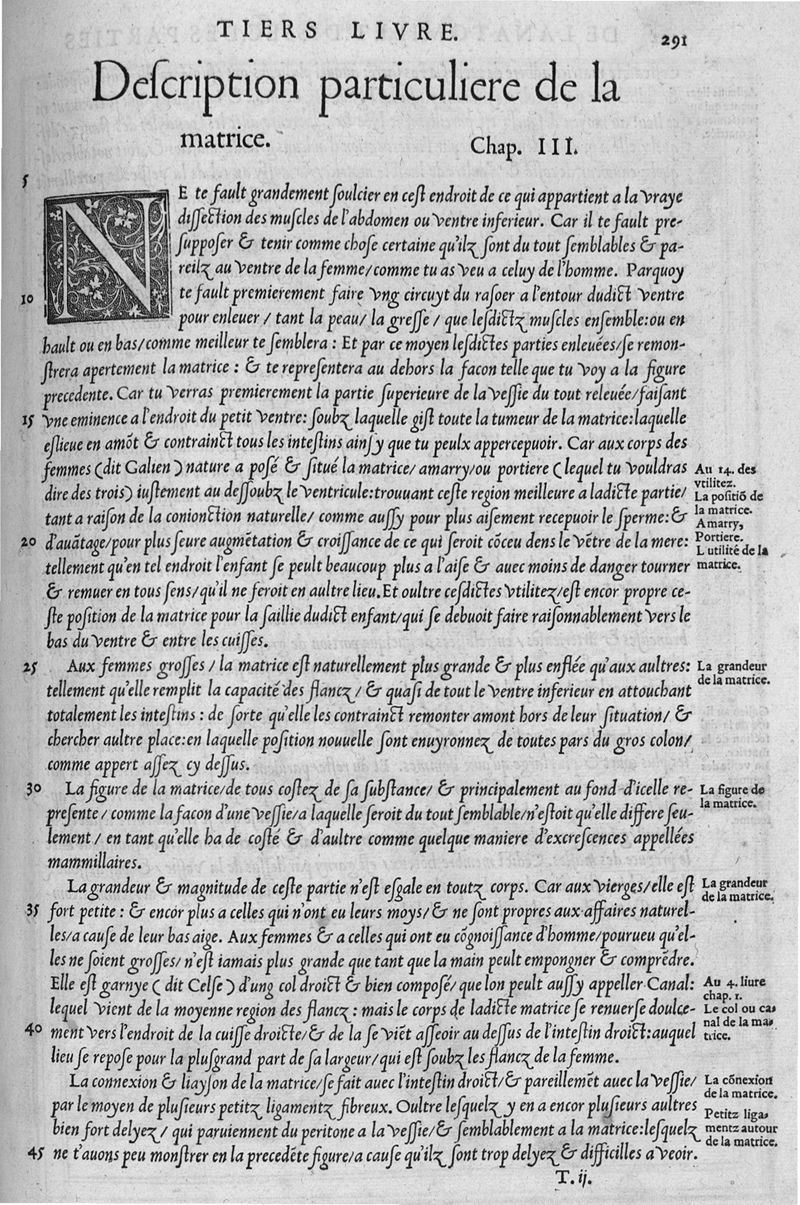 TIERS LIVRE.
291
Deſcription particuliere de la
matrice.
Chap. III.
5
NE te fault grandement ſoulcier en ceſt endroit de ce qui appartient a la vraye
diſſection des muſcles de l'abdomen ou ventre inferieur. Car il te fault pre-
ſuppoſer & tenir comme choſe certaine qu'ilz ſont du tout ſemblables & pa-
reilz au ventre de la femme/comme tu as veu a celuy de l'homme. Parquoy
10 te fault premierement faire vng circuyt du raſoer a l'entour dudict ventre
pour enleuer / tant la peau/ la greſſe / que leſdictz muſcles enſemble:ou en
hault ou en bas/comme meilleur te ſemblera : Et par ce moyen leſdictes parties enleuées/ſe remon-
ſtrera apertement la matrice : & te repreſentera au dehors la facon telle que tu voy a la figure
precedente. Car tu verras premierement la partie ſuperieure de la veſſie du tout releuée/faiſant
15 vne eminence a l'endroit du petit ventre: ſoubz laquelle giſt toute la tumeur de la matrice:laquelle
eſlieue en amõt & contrainct tous les inteſtins ainſy que tu peulx appercepuoir. Car aux corps des
femmes (dit Galien) nature a poſé & ſitué la matrice/ amarry/ou portiere (lequel tu vouldras
dire des trois) iuſtement au deſſoubz le ventricule:trouuant ceſte region meilleure a ladicte partie/
tant a raiſon de la conionction naturelle/ comme auſſy pour plus aiſement recepuoir le ſperme:&
20 d'auãtage/pour plus ſeure augmẽtation & croiſſance de ce qui ſeroit cõceu dens le vẽtre de la mere:
tellement qu'en tel endroit l'enfant ſe peult beaucoup plus a l'aiſe & auec moins de danger tourner
& remuer en tous ſens/qu'il ne feroit en aultre lieu. Et oultre ceſdictes vtilitez/eſt encor propre ce-
ſte poſition de la matrice pour la ſaillie dudict enfant/qui ſe debuoit faire raiſonnablement vers le
bas du ventre & entre les cuiſſes.
Au 14. des
vtilitez.
La poſitiõ de
la matrice.
Amarry,
Portiere.
L utilité de la
matrice.
25 Aux femmes groſſes / la matrice eſt naturellement plus grande & plus enflée qu'aux aultres:
tellement qu'elle remplit la capacité des flancz/ & quaſi de tout le ventre inferieur en attouchant
totalement les inteſtins : de ſorte qu'elle les contrainct remonter amont hors de leur ſituation/ &
chercher aultre place:en laquelle poſition nouuelle ſont enuyronnez de toutes pars du gros colon/
comme appert aſſez cy deſſus.
La grandeur
de la matrice.
30 La figure de la matrice/de tous coſtez de ſa ſubſtance/ & principalement au fond d'icelle re-
preſente / comme la facon d'une veſſie/a laquelle ſeroit du tout ſemblable/n'eſtoit qu'elle differe ſeu-
lement / en tant qu'elle ha de coſté & d'aultre comme quelque maniere d'excreſcences appellées
mammillaires.
La figure de
la matrice.
La grandeur & magnitude de ceſte partie n'eſt eſgale en toutz corps. Car aux vierges/elle eſt
35 fort petite : & encor plus a celles qui n'ont eu leurs moys/ & ne ſont propres aux affaires naturel-
les/a cauſe de leur bas aige. Aux femmes & a celles qui ont eu cõgnoiſſance d'homme/pourueu qu'el-
les ne ſoient groſſes/ n'eſt iamais plus grande que tant que la main peult empongner & comprẽdre.
Elle eſt garnye ( dit Celſe ) d'ung col droict & bien compoſé/ que lon peult auſſy appeller Canal:
lequel vient de la moyenne region des flancz : mais le corps de ladicte matrice ſe renuerſe doulce-
40 ment vers l'endroit de la cuiſſe droicte/& de la ſe viẽt aſſeoir au deſſus de l'inteſtin droict:auquel
lieu ſe repoſe pour la pluſgrand part de ſa largeur/qui eſt ſoubz les flancz de la femme.
La grandeur
de la matrice.
Au 4. liure
chap. 1.
Le col ou ca-
nal de la ma-
trice.
La connexion & liayſon de la matrice/ſe fait auec l'inteſtin droict/& pareillemẽt auec la veſſie/
par le moyen de pluſieurs petitz ligamentz fibreux. Oultre leſquelz y en a encor pluſieurs aultres
bien fort delyez / qui paruiennent du peritone a la veſſie/& ſemblablement a la matrice:leſquelz
45 ne t'auons peu monſtrer en la precedẽte figure/a cauſe qu'ilz ſont trop delyez & difficilles a veoir.
La cõnexion
de la matrice.
Petitz liga-
mentz autour
de la matrice.
T. ij.